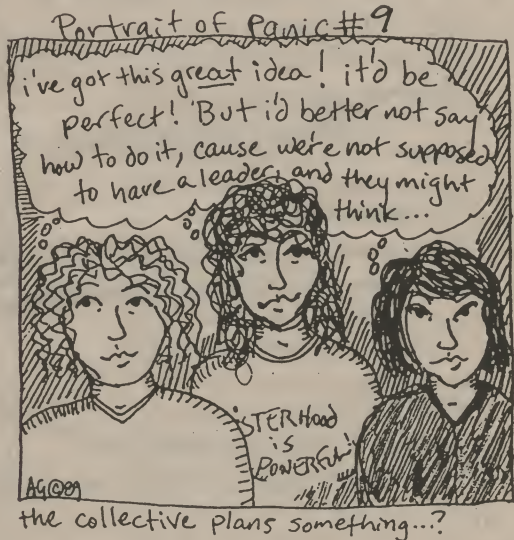 Portrait of Panic #9
i've got this great idea! it'd be
perfect! But i'd better not say
how to do it, cause we're not supposed
to have a leader, and they might
think...
ISTERHOOD
is
POWERFUL!
AG©89
the collective plans something...?